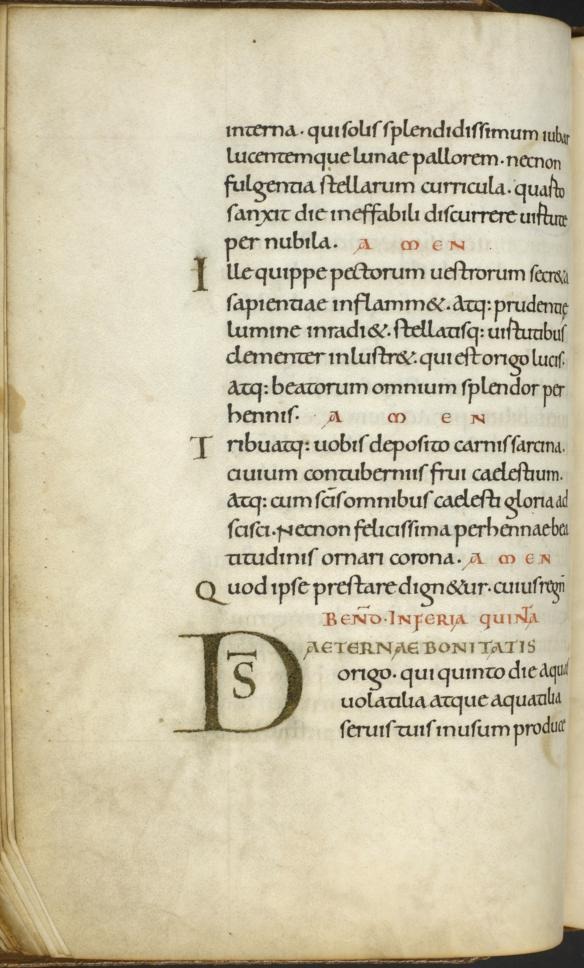 interna · qui solis splendidissimum iubar
lucentemque lunae pallorem · necnon
fulgentia stellarum curricula · quarto
sanxit die ineffabili discurrere uirtute
per nubila · AMEN
Ille quippe pectorum uestrorum secreta
sapientiae inflamm& · Atq: prudentię
lumine inradi& · stellatisq: uirtutibus
clementer inlustr& · qui est origo lucis ·
Atq: beatorum omnium splendor per
hennis · AMEN
Tribuatq: uobis deposito carnis sarcina ·
ciuium contuberniis frui caelestium ·
Atq: cum sc̄is omnibus caelesti gloria ad
scisci · Necnon felicissima perhennae bea
titudinis ornari corona · AMEN
Quod ipse prestare dign&ur · cuius regn̄
BEND̄ · IN FERIA QUINTA
D̄S AETERNAE BONITATIS
origo · qui quinto die aqua
uolatilia atque aquatilia
seruis tuis in usum produce